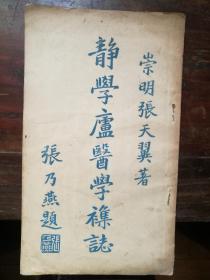 崇明張天翼著
靜學廬醫學襍誌
張乃燕題